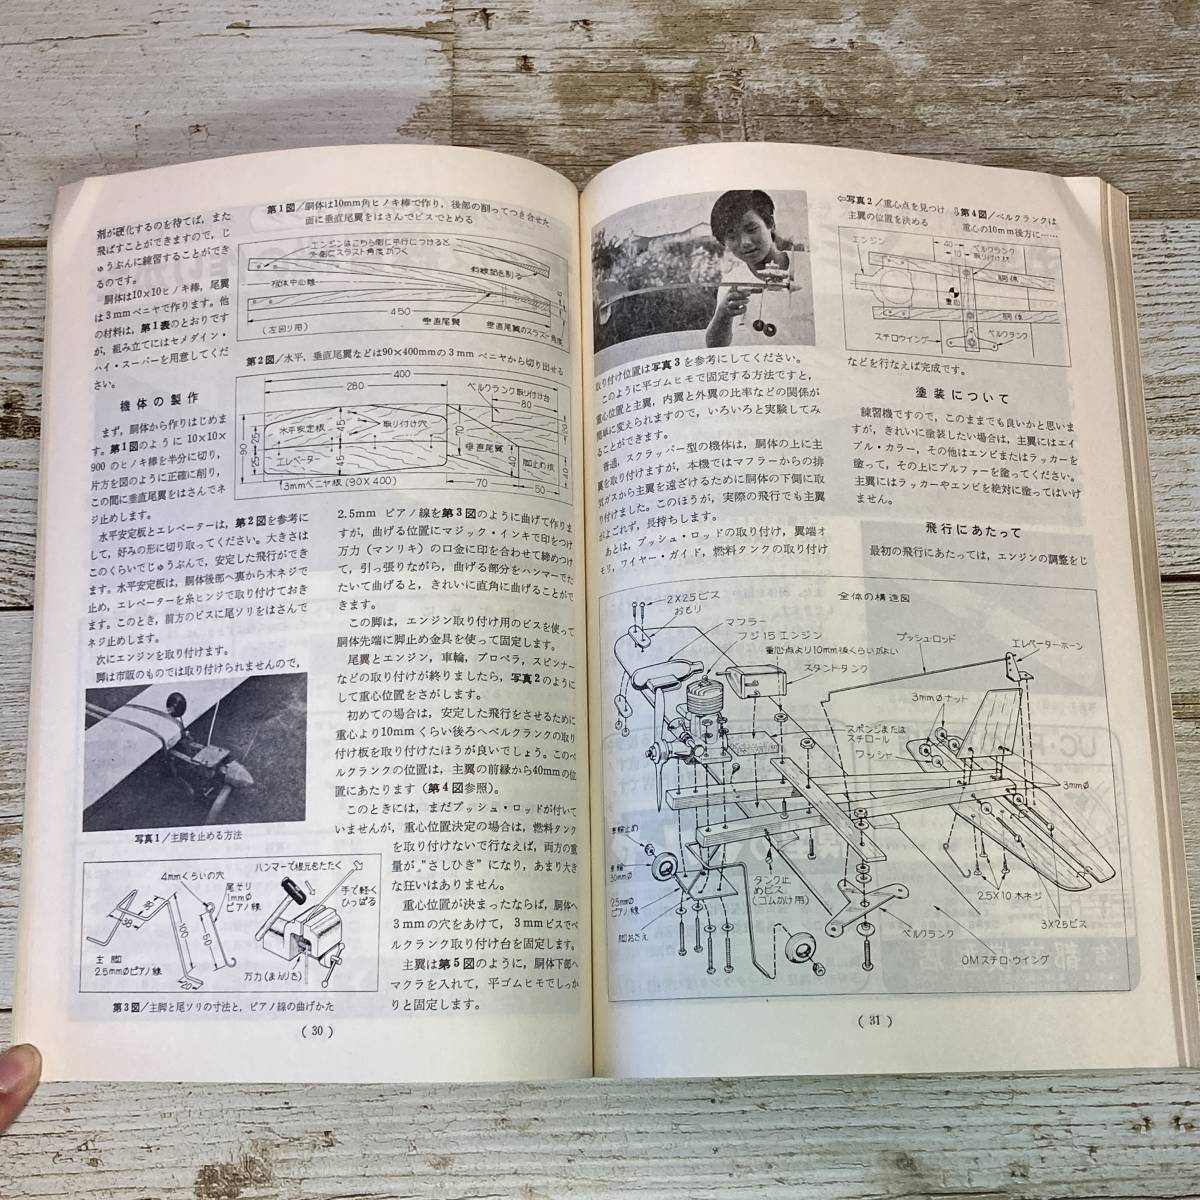 剤が硬化するのを待てば，また
飛ばすことができますので，じ
ゅうぶんに練習することができ
るのです。
胴体は10×10ヒノキ棒，尾翼
は3mmベニヤで作ります。他
の材料は，第1表のとおりです
が，組み立てにはセメダイン・
ハイ・スーパーを用意してくだ
さい。
機体の製作
まず，胴体から作りはじめま
す。第1図のように10×10×
900のヒノキ棒を半分に切り，
片方を図のように正確に削り，
この間に垂直尾翼をはさんでネ
ジ止めします。
水平安定板とエレベーターは，第2図を参考に
して，好みの形に切り取ってください。大きさは
このくらいでじゅうぶんで，安定した飛行ができ
ます。水平安定板は，胴体後部へ裏から木ネジで
止め，エレベーターを糸ヒンジで取り付けておき
ます。このとき，前方のビスに尾ソリをはさんで
ネジ止めします。
次にエンジンを取り付けます。
脚は市販のものでは取り付けられませんので，
写真1／主脚を止める方法
4mmくらいの穴
尾そり
1mmφ
ピアノ線
38
38
100
50
20
主脚
2.5mmφピアノ線
ハンマーで根元をたたく
手で軽く
ひっぱる
万力(まんりき)
第3図／主脚と尾ソリの寸法と，ピアノ線の曲げかた
第1図／胴体は10mm角ヒノキ棒で作り，後部の削ってつき合せた
面に垂直尾翼をはさんでビスでとめる
エンジンはこちら側に平行につけると
外側にスラスト角度がつく
斜線部を削る
機体中心線
450
(左回り用)
垂直尾翼
垂直尾翼のスラスト角度
第2図／水平，垂直尾翼などは90×400mmの3mmベニヤから切り出せる
400
280
ベルクランク取り付け台
80
水平安定板
取り付け穴
エレベーター
垂直尾翼
脚止め板
90
25
25
45
45
70
40
40
70
50
3mmベニヤ板(90×400)
2.5mm ピアノ線を第3図のように曲げて作りま
すが，曲げる位置にマジック・インキで印をつけ
て，万力（マンリキ）の口金に印を合わせて締めつけ
て，引っ張りながら，曲げる部分をハンマーでた
たいて曲げると，きれいに直角に曲げることがで
きます。
この脚は，エンジン取り付け用のビスを使って
胴体先端に脚止め金具を使って固定します。
尾翼とエンジン，車輪，プロペラ，スピンナー
などの取り付けが終りましたら，写真2のように
して重心位置をさがします。
初めての場合は，安定した飛行をさせるために
重心より10mmくらい後ろへベルクランクの取り
付け板を取り付けたほうが良いでしょう。このベ
ルクランクの位置は，主翼の前縁から40mmの位
置にあたります（第4図参照）。
このときには，まだプッシュ・ロッドが付いて
いませんが，重心位置決定の場合は，燃料タンク
を取り付けないで行なえば，両方の重
量が“さしひき”になり，あまり大き
な狂いはありません。
重心位置が決まったならば，胴体へ
3mmの穴をあけて，3mmビスでベ
ルクランク取り付け台を固定します。
主翼は第5図のように，胴体下部へ
マクラを入れて，平ゴムヒモでしっか
りと固定します。
(30)
取り付け位置は写真3を参考にしてください。
このように平ゴムヒモで固定する方法ですと，
重心位置と主翼，内翼と外翼の比率などの関係が
簡単に変えられますので，いろいろと実験してみ
ることができます。
普通，スクラッパー型の機体は，胴体の上に主
翼を取り付けますが，本機ではマフラーからの排
気ガスから主翼を遠ざけるために胴体の下側に取
り付けました。このほうが，実際の飛行でも主翼
がよごれず，長持ちします。
あとは，プッシュ・ロッドの取り付け，翼端オ
モリ，ワイヤー・ガイド，燃料タンクの取り付け
⇦写真2／重心点を見つけ
主翼の位置を決める
⇩第4図／ベルクランクは
重心の10mm後方に……
エンジン
40
10
ベルクランク
取り付け板
胴体
重心
胴体
スチロウイング
ベルクランク
などを行なえば完成です。
塗装について
練習機ですので，このままでも良いかと思いま
すが，きれいに塗装したい場合は，主翼にはエイ
ブル・カラー，その他はエンビまたはラッカーを
塗って，その上にブルファーを塗ってください。
主翼にはラッカーやエンビを絶対に塗ってはいけ
ません。
飛行にあたって
最初の飛行にあたっては，エンジンの調整をじ
全体の構造図
2×25ビス
おもり
マフラー
フジ15エンジン
重心点より10mm後くらいがよい
スタントタンク
プッシュ・ロッド
エレベーターホーン
3mmφナット
スポンジまたは
スチロール
ワッシャ
3mmφ
車輪止め
車輪
30mmφ
2.5mmφ
ピアノ線
脚おさえ
タンク止
めビス
(ゴムかけ用)
ベルクランク
2.5×10 木ネジ
3×25ビス
OMスチロ・ウイング
(31)